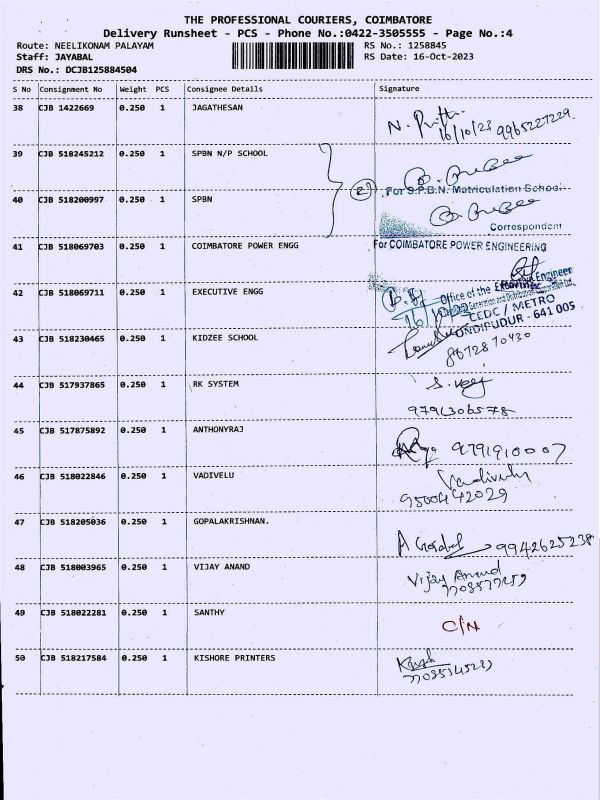 THE PROFESSIONAL COURIERS, COIMBATORE
Delivery Runsheet - PCS - Phone No.:0422-3505555 - Page No.:4
Route: NEELIKONAM PALAYAM RS No.: 1258845
Staff: JAYABAL RS Date: 16-Oct-2023
DRS No.: DCJB125884504
S No Consignment No Weight PCS Consignee Details Signature
38 CJB 1422669 0.250 1 JAGATHESAN
16/10/23 9965227229
39 CJB 518245212 0.250 1 SPBN N/P SCHOOL
For S.P.B.N. Matriculation School
40 CJB 518200997 0.250 1 SPBN
Correspondent
41 CJB 518069703 0.250 1 COIMBATORE POWER ENGG For COIMBATORE POWER ENGINEERING
42 CJB 518069711 0.250 1 EXECUTIVE ENGG
Office of the Engineer
CEDC / METRO
ONDIPUDUR - 641 005
43 CJB 518230465 0.250 1 KIDZEE SCHOOL
8672870430
44 CJB 517937865 0.250 1 RK SYSTEM
9791306578
45 CJB 517875892 0.250 1 ANTHONYRAJ
9791910007
46 CJB 518022846 0.250 1 VADIVELU Vadivelu
9500442029
47 CJB 518205036 0.250 1 GOPALAKRISHNAN.
9942625238
48 CJB 518003965 0.250 1 VIJAY ANAND Vijay Anand
49 CJB 518022281 0.250 1 SANTHY C/N
50 CJB 518217584 0.250 1 KISHORE PRINTERS